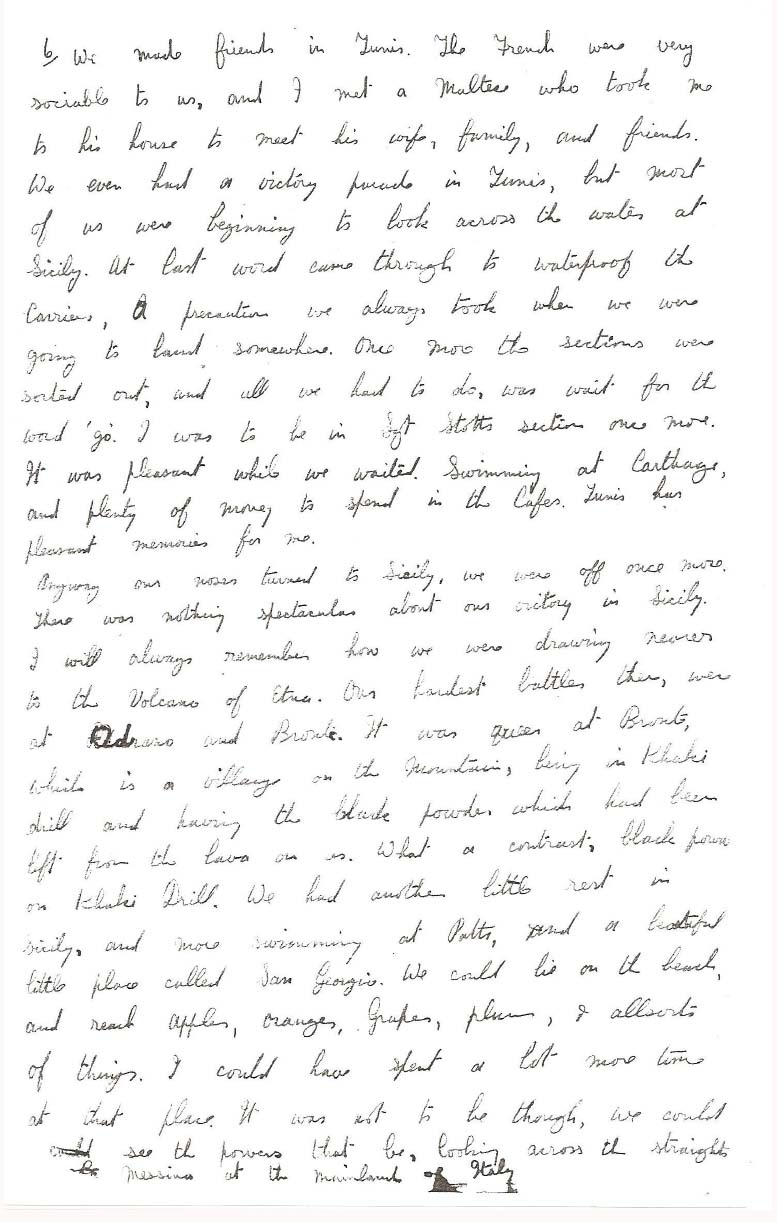 6/ We made friends in Tunis. The French were very
sociable to us, and I met a Maltese who took me
to his house to meet his wife, family, and friends.
We even had a victory parade in Tunis, but most
of us were beginning to look across the water at
Sicily. At last word came through to waterproof the
Carriers, A precaution we always took when we were
going to land somewhere. Once more the sections were
sorted out, and all we had to do, was wait for the
word 'go. I was to be in Sgt Stotts section once more.
It was pleasant while we waited. Swimming at Carthage,
and plenty of money to spend in the Cafes. Tunis has
pleasant memories for me.
Anyway our noses turned to Sicily, we were off once more.
There was nothing spectacular about our victory in Sicily.
I will always remember how we were drawing nearer
to the Volcano of Etna. Our hardest battles there, were
at Adrano and Bronte. It was queer at Bronte,
which is a village on the Mountain, being in Khaki
drill and having the black powder which had been
left from the lava on us. What a contrast, black
on Khaki Drill. We had another little rest in
sicily, and more swimming at Patts, and a beatiful
little place called San Georgio. We could lie on the beach,
and reach apples, oranges, Grapes, plums, & allsorts
of things. I could have spent a lot more time
at that place. It was not to be though, we could
see the powers that be, looking across the straights
Messina at the mainland of Italy